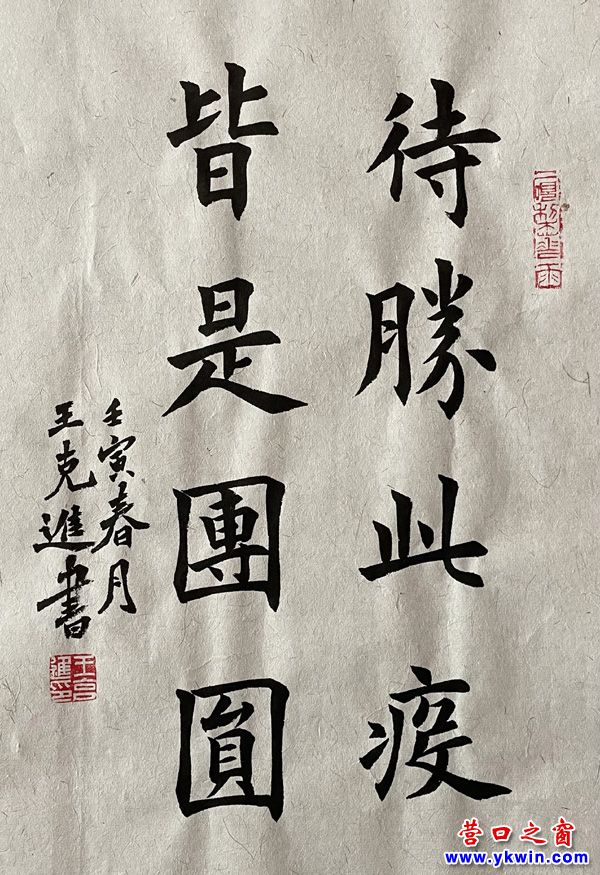 待勝此疫
皆是團圓
壬寅春月
王克進書
营口之窗
www.ykwin.com